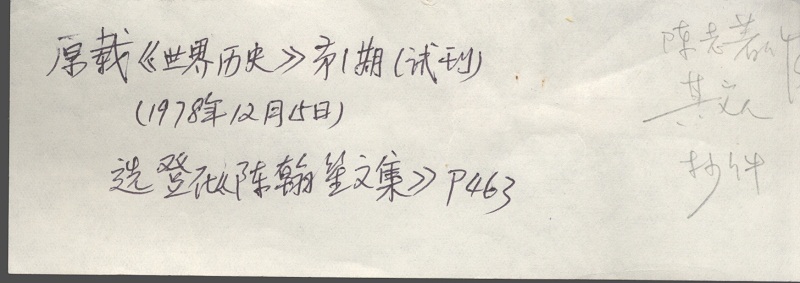 原载《世界历史》第1期(试刊)
(1978年12月15日)
选登在《陈翰笙文集》P463
陈志
其文人
抄件